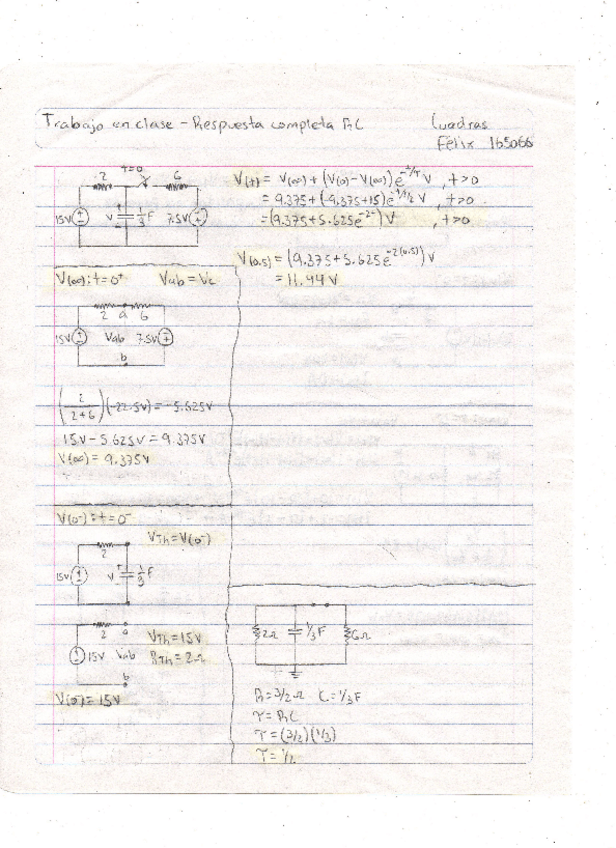 Trabajo en clase - Respuesta completa RC
Cuadras
Félix 165066
t=0
2
6
15V
V
1/3 F
7.5V
V(t) = V(∞) + (V(0) - V(∞)) e^-t/τ V , t>0
= 9.375 + (-9.375+15) e^-t/1/2 V , t>0
= (9.375+5.625e^-2t) V , t>0
V(0.5) = (9.375+5.625e^-2(0.5)) V
= 11.44 V
V(∞): t=0⁺ Vab = Vc
2 a 6
15V Vab 7.5V
b
(2/(2+6))(-22.5V) = -5.625V
15V - 5.625V = 9.375V
V(∞) = 9.375V
V(0⁻): t=0⁻
VTh = V(0⁻)
2
15V V 1/3 F
2 a
15V Vab
b
VTh = 15V
RTh = 2Ω
V(0⁻) = 15V
2Ω 1/3 F 6Ω
R = 3/2 Ω C = 1/3 F
τ = RC
τ = (3/2)(1/3)
τ = 1/2